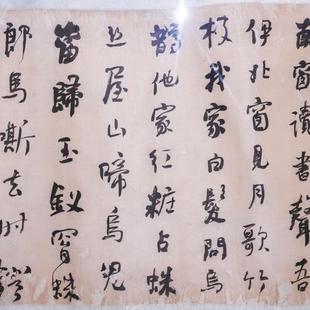 南窗讀書聲吾
伊北窗見月歌竹
枝我家白髮問烏
鵲他家紅粧占蛛
絲屋山啼烏兒
當歸玉釵罥蛛
郎馬嘶去時燈